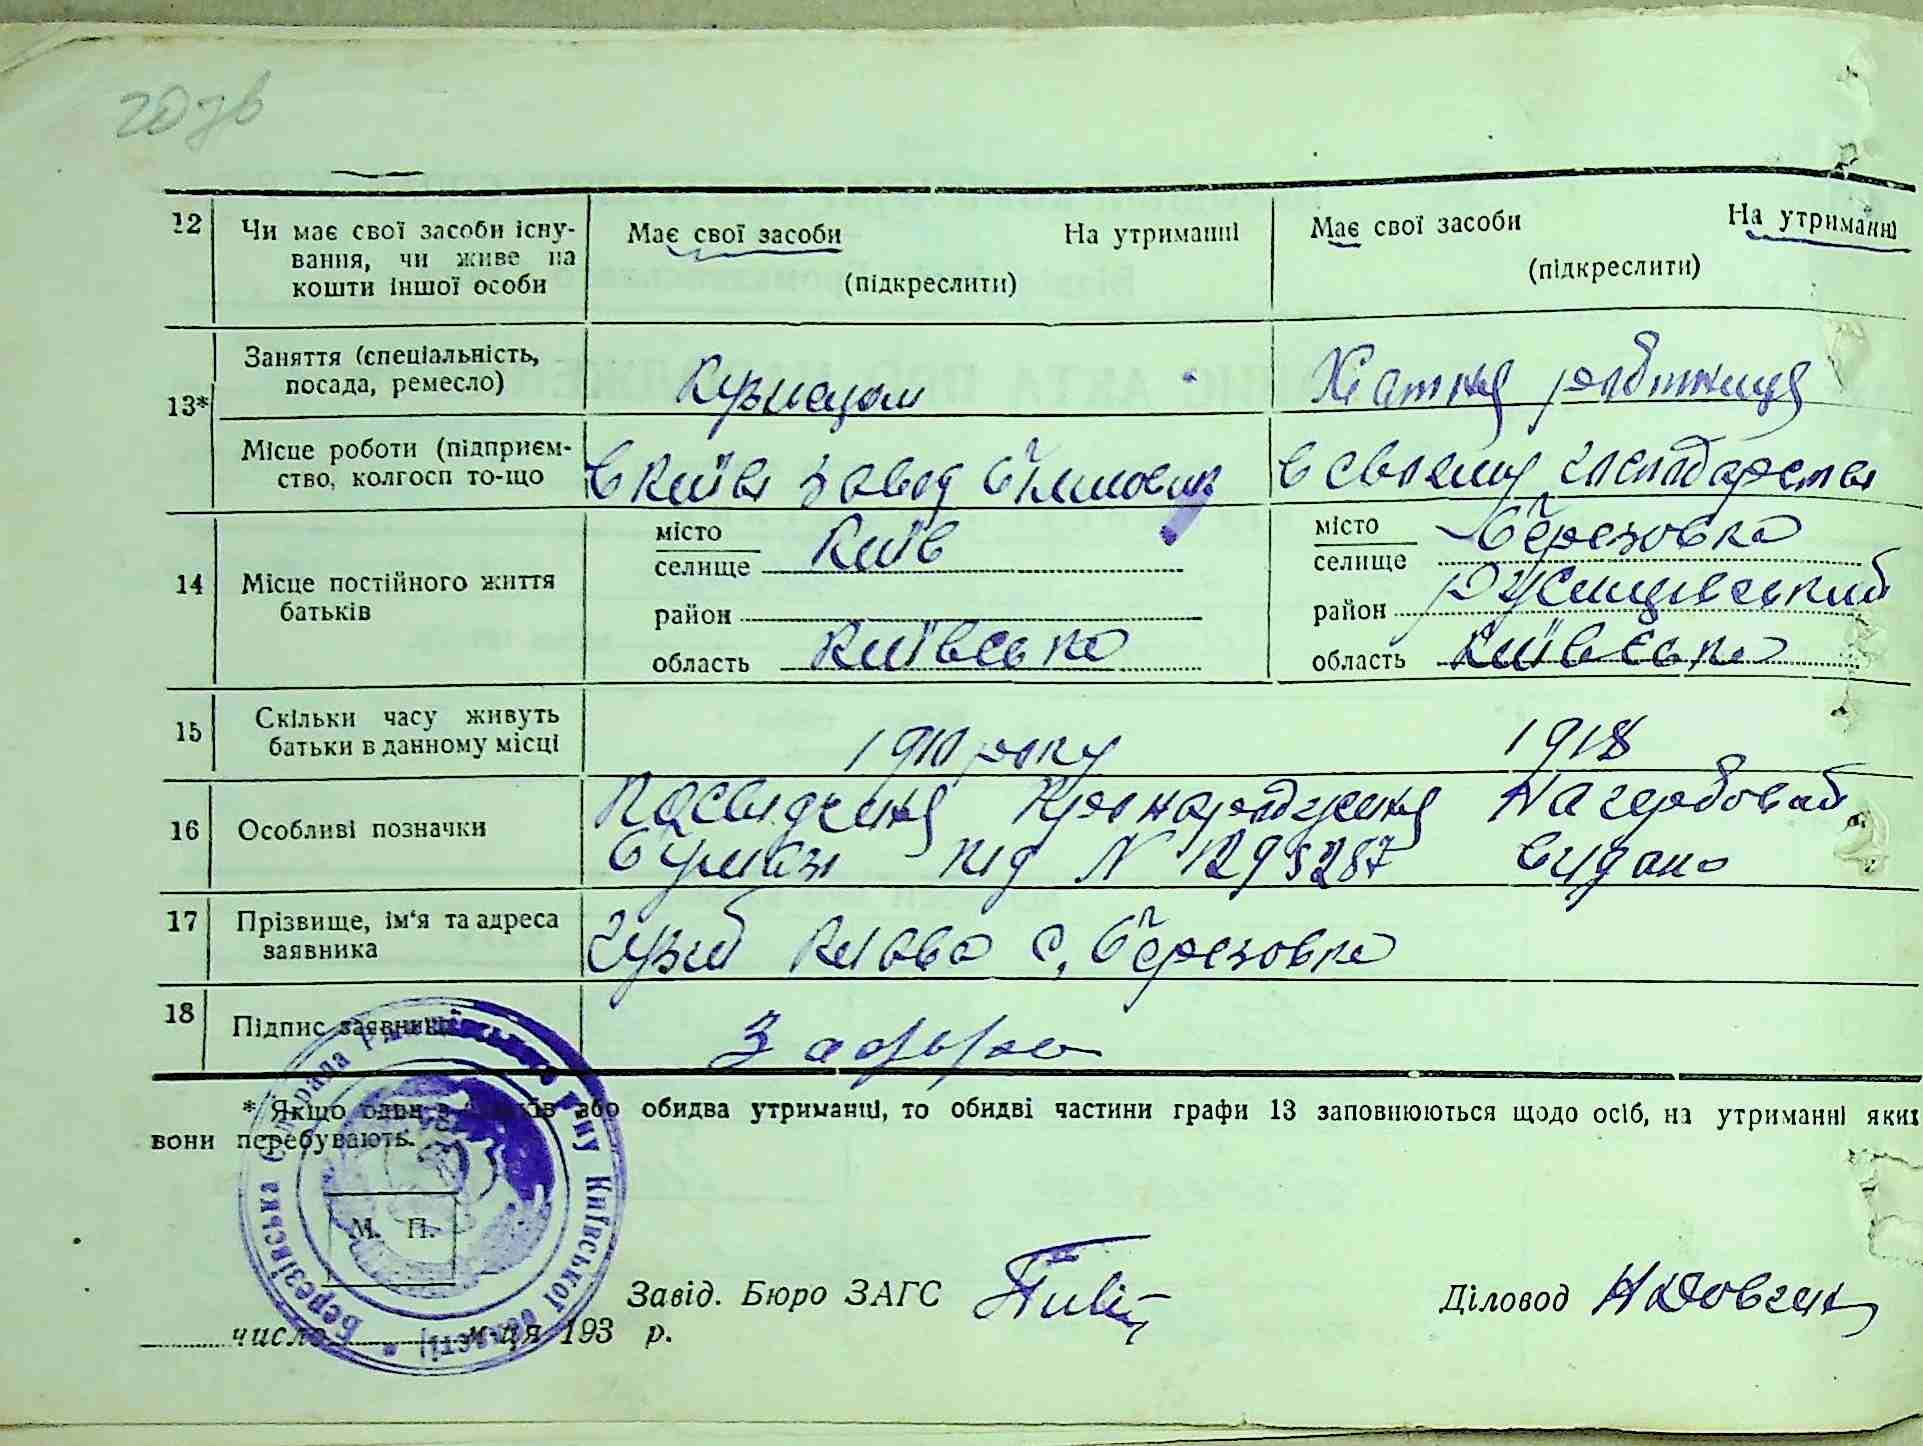 207в
12
Чи має свої засоби існу-
вання, чи живе на
кошти іншої особи
Має свої засоби На утриманні
(підкреслити)
Має свої засоби На утриманні
(підкреслити)
13*
Заняття (спеціальність,
посада, ремесло)
Кузнецом
Хатня робітниця
Місце роботи (підприєм-
ство, колгосп то-що
в Київі завод
в своєму господарстві
14
Місце постійного життя
батьків
місто
селище Київ
район
область Київсько
місто
селище Березовко
район Ржищевський
область Київсько
15
Скільки часу живуть
батьки в данному місці
року
1918
16
Особливі позначки
Посвідченя про народженя на гербовой
бумазі під N 1293287 видано
17
Прізвище, ім'я та адреса
заявника
с. Березовко
18
Підпис заявника
* Якщо один з батьків або обидва утриманці, то обидві частини графи 13 заповнюються щодо осіб, на утриманні яких
вони перебувають.
Березівська Сільрада Ржищівського р-ну Київської області
М. П.
Завід. Бюро ЗАГС
Діловод
число м-ця 193 р.